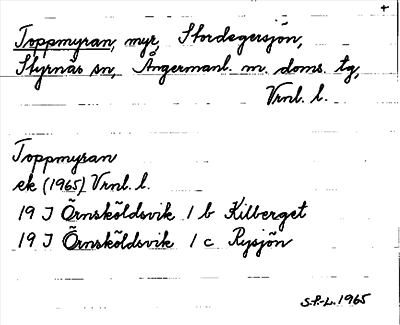 +
Toppmyran, myr, Stordegersjön,
Styrnäs sn, Ångermanl. m. doms. tg,
Vrnl. l.
Toppmyran
ek (1965) Vrnl. l.
19 J Örnsköldsvik 1 b Kilberget
19 J Örnsköldsvik 1 c Rysjön
S.P.-L. 1965